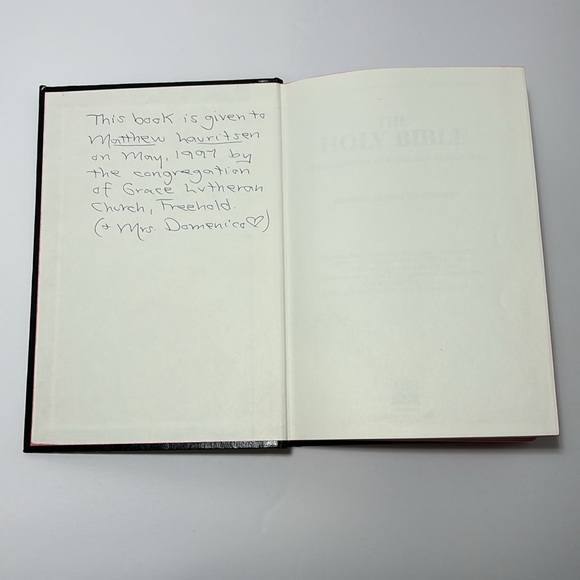 This book is given to
Matthew Lauritsen
on May, 1997 by
the congregation
of Grace Lutheran
Church, Freehold.
(+ Mrs. Domenica♡)
THE
HOLY BIBLE